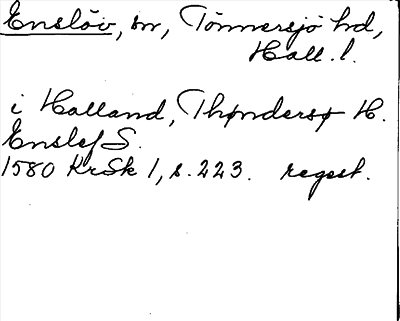 Enslöv, sn, Tönnersjö hd,
Hall. l.
i Halland, Thøndersø H.
Enslef S.
1580 KrSk 1, s. 223. regest.